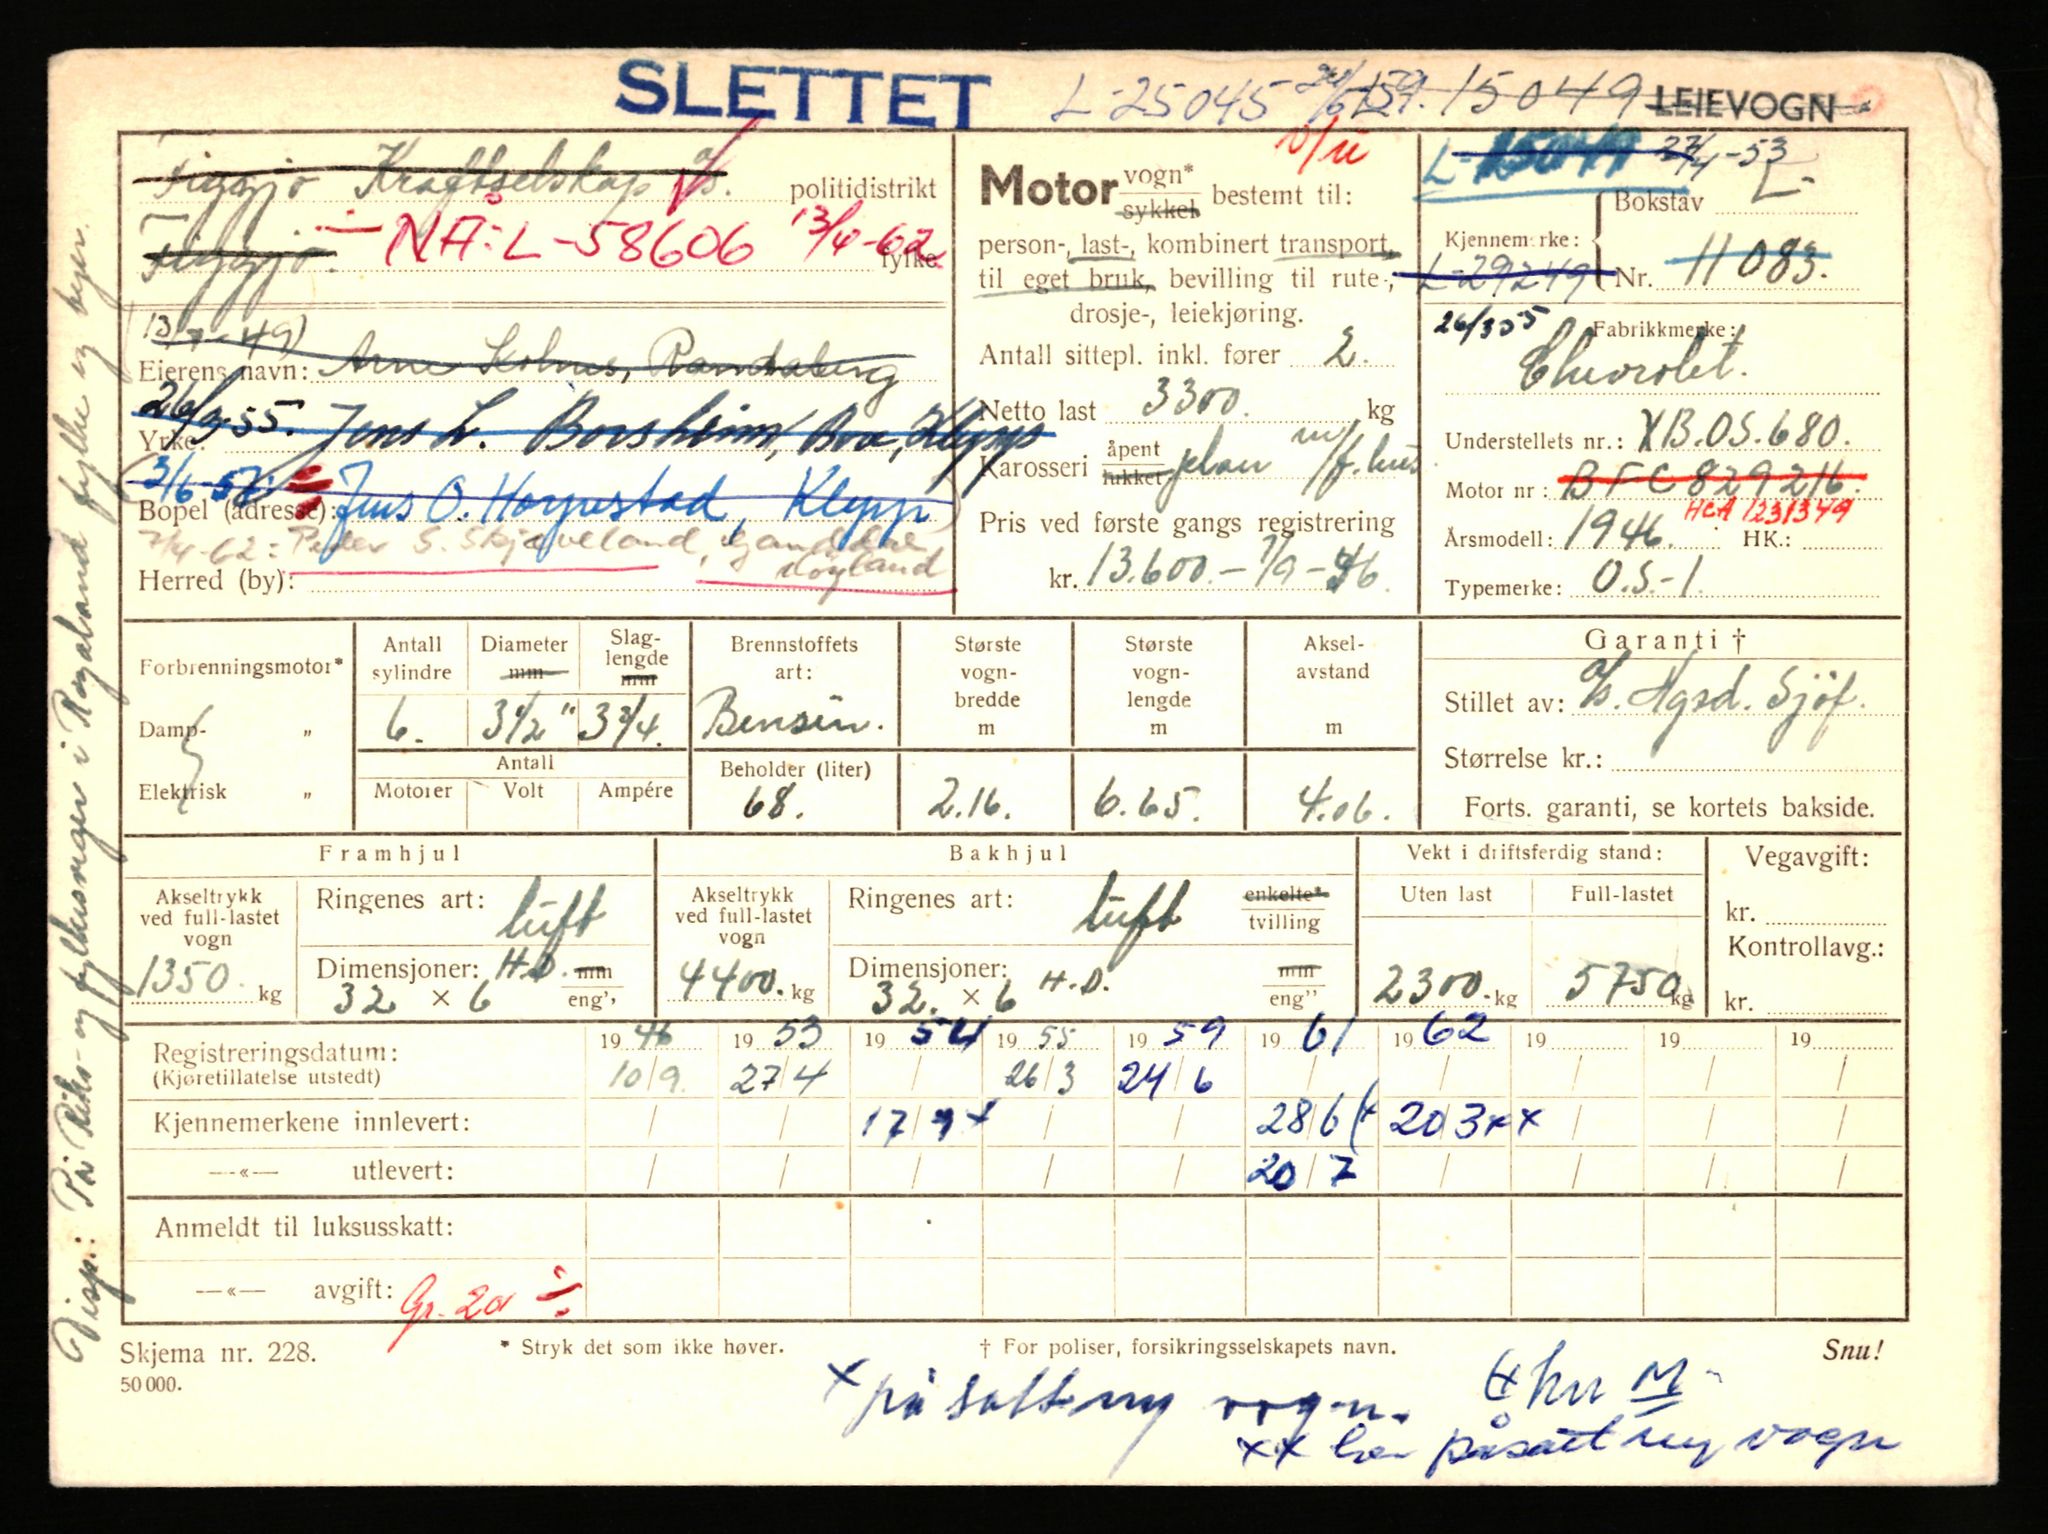 SLETTET L-25045 24/6-59. 15049 LEIEVOGN
Figgjo Kraftselskap A/S. politidistrikt
Figgjo. NÅ: L-58606 13/4-62 fylke
13/7-49)
Eierens navn: Arne Randaberg
26/3-55. Jens L. Borsheim, Bore, Klepp
Yrke:
3/6-57 Jens O. Horpestad, Klepp
Bopel (adresse):
7/4-62: Peder S. Skjæveland,
Høyland
Herred (by):
Motor vogn* sykkel bestemt til:
person-, last-, kombinert transport,
til eget bruk, bevilling til rute-,
drosje-, leiekjøring.
Antall sittepl. inkl. fører 2.
Netto last 3300. kg
Karosseri åpent lukket plan m/f.hus
Pris ved første gangs registrering
kr. 13.600.- 7/9-46.
L-15049 27/4-53
Bokstav L-
Kjennemerke:
L-29249 Nr. 11083.
26/3 55 Fabrikkmerke:
Chevrolet.
Understellets nr.: XB.OS.680.
Motor nr: BFC 829216.
HCA 1231349
Årsmodell: 1946. HK.:
Typemerke: O.S.-1.
Forbrenningsmotor*
Damp- „
Elektrisk „
Antall sylindre 6.
Diameter mm 3 1/2"
Slaglengde mm 3 3/4.
Antall
Motorer Volt Ampére
Brennstoffets art: Bensin.
Beholder (liter) 68.
Største vognbredde m 2.16.
Største vognlengde m 6.65.
Akselavstand m 4.06.
Garanti †
Stillet av: A/S. Agsd. Sjöf.
Størrelse kr.:
Forts. garanti, se kortets bakside.
Framhjul
Akseltrykk ved full-lastet vogn 1350. kg
Ringenes art: luft
Dimensjoner: H.D. mm
32 × 6 eng''
Bakhjul
Akseltrykk ved full-lastet vogn 4400. kg
Ringenes art: luft enkelte* tvilling
Dimensjoner: H.D. mm
32. × 6 eng''
Vekt i driftsferdig stand:
Uten last Full-lastet
2300. kg 5750 kg
Vegavgift:
kr.
Kontrollavg.:
kr.
Registreringsdatum: 19 46 19 53 19 54 19 55 19 59 19 61 19 62 19 19 19
(Kjøretillatelse utstedt) 10/9. 27/4 / 26/3 24/6 / / / / /
Kjennemerkene innlevert: / / 17/9 x / / 28/6 20/3 xx / / /
—«— utlevert: / / / / / 20/7 / / / /
Anmeldt til luksusskatt:
—«— avgift: Gr. 2a
Skjema nr. 228.
50 000.
* Stryk det som ikke høver.
† For poliser, forsikringsselskapets navn.
Snu!
x påsatt ny vogn.
xx påsatt ny vogn
Disp.: På Riks- og fylkesveger i Rogaland fylke og byer.